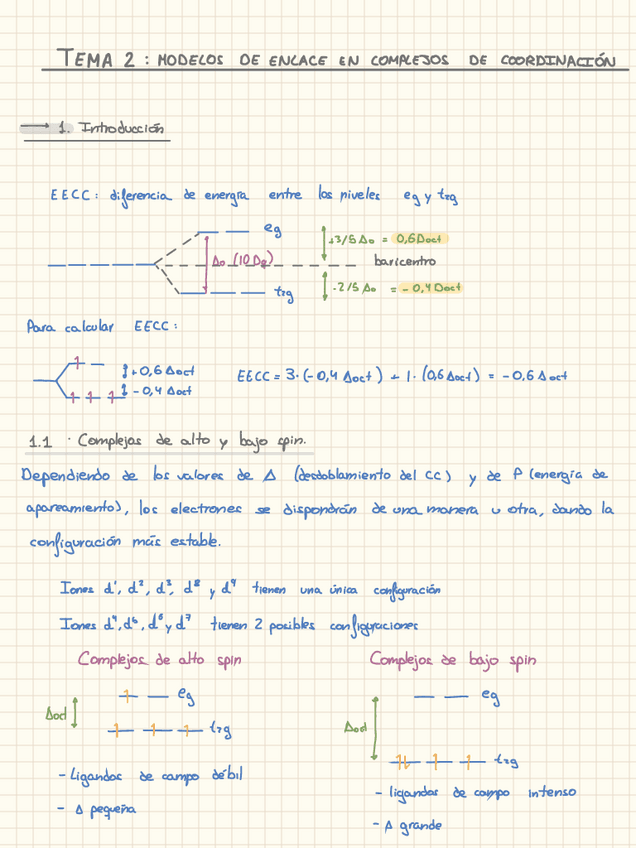 TEMA 2 : MODELOS DE ENLACE EN COMPLEJOS DE COORDINACIÓN
→ 1. Introducción
EECC: diferencia de energía entre los niveles eg y t2g
eg
+3/5 Δo = 0,6 Doct
Δo (10 Dq)
baricentro
t2g
-2/5 Δo = -0,4 Doct
Para calcular EECC:
+0,6 Δoct
-0,4 Δoct
EECC = 3·(-0,4 Δoct) + 1·(0,6 Δoct) = -0,6 Δoct
1.1 · Complejas de alto y bajo spin.
Dependiendo de los valores de Δ (desdoblamiento del CC) y de P (energía de
apareamiento), los electrones se dispondrán de una manera u otra, dando la
configuración más estable.
Iones d¹, d², d³, d⁸ y d⁹ tienen una única configuración
Iones d⁴, d⁶, d⁶ y d⁷ tienen 2 posibles configuraciones
Complejos de alto spin
eg
Δoct
t2g
- Ligandos de campo débil
- Δ pequeña
Complejos de bajo spin
eg
Δoct
t2g
- ligandos de campo intenso
- Δ grande